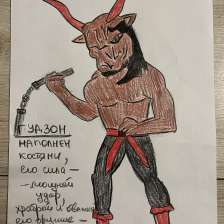 ГУДЗОН
НАПОЛНЕН
КОСТЯМИ,
ЕГО СИЛА —
— МОЩНЫЙ
УДАР,
ХРАБРЫЙ И
ЕГО ОРУЖИЕ —